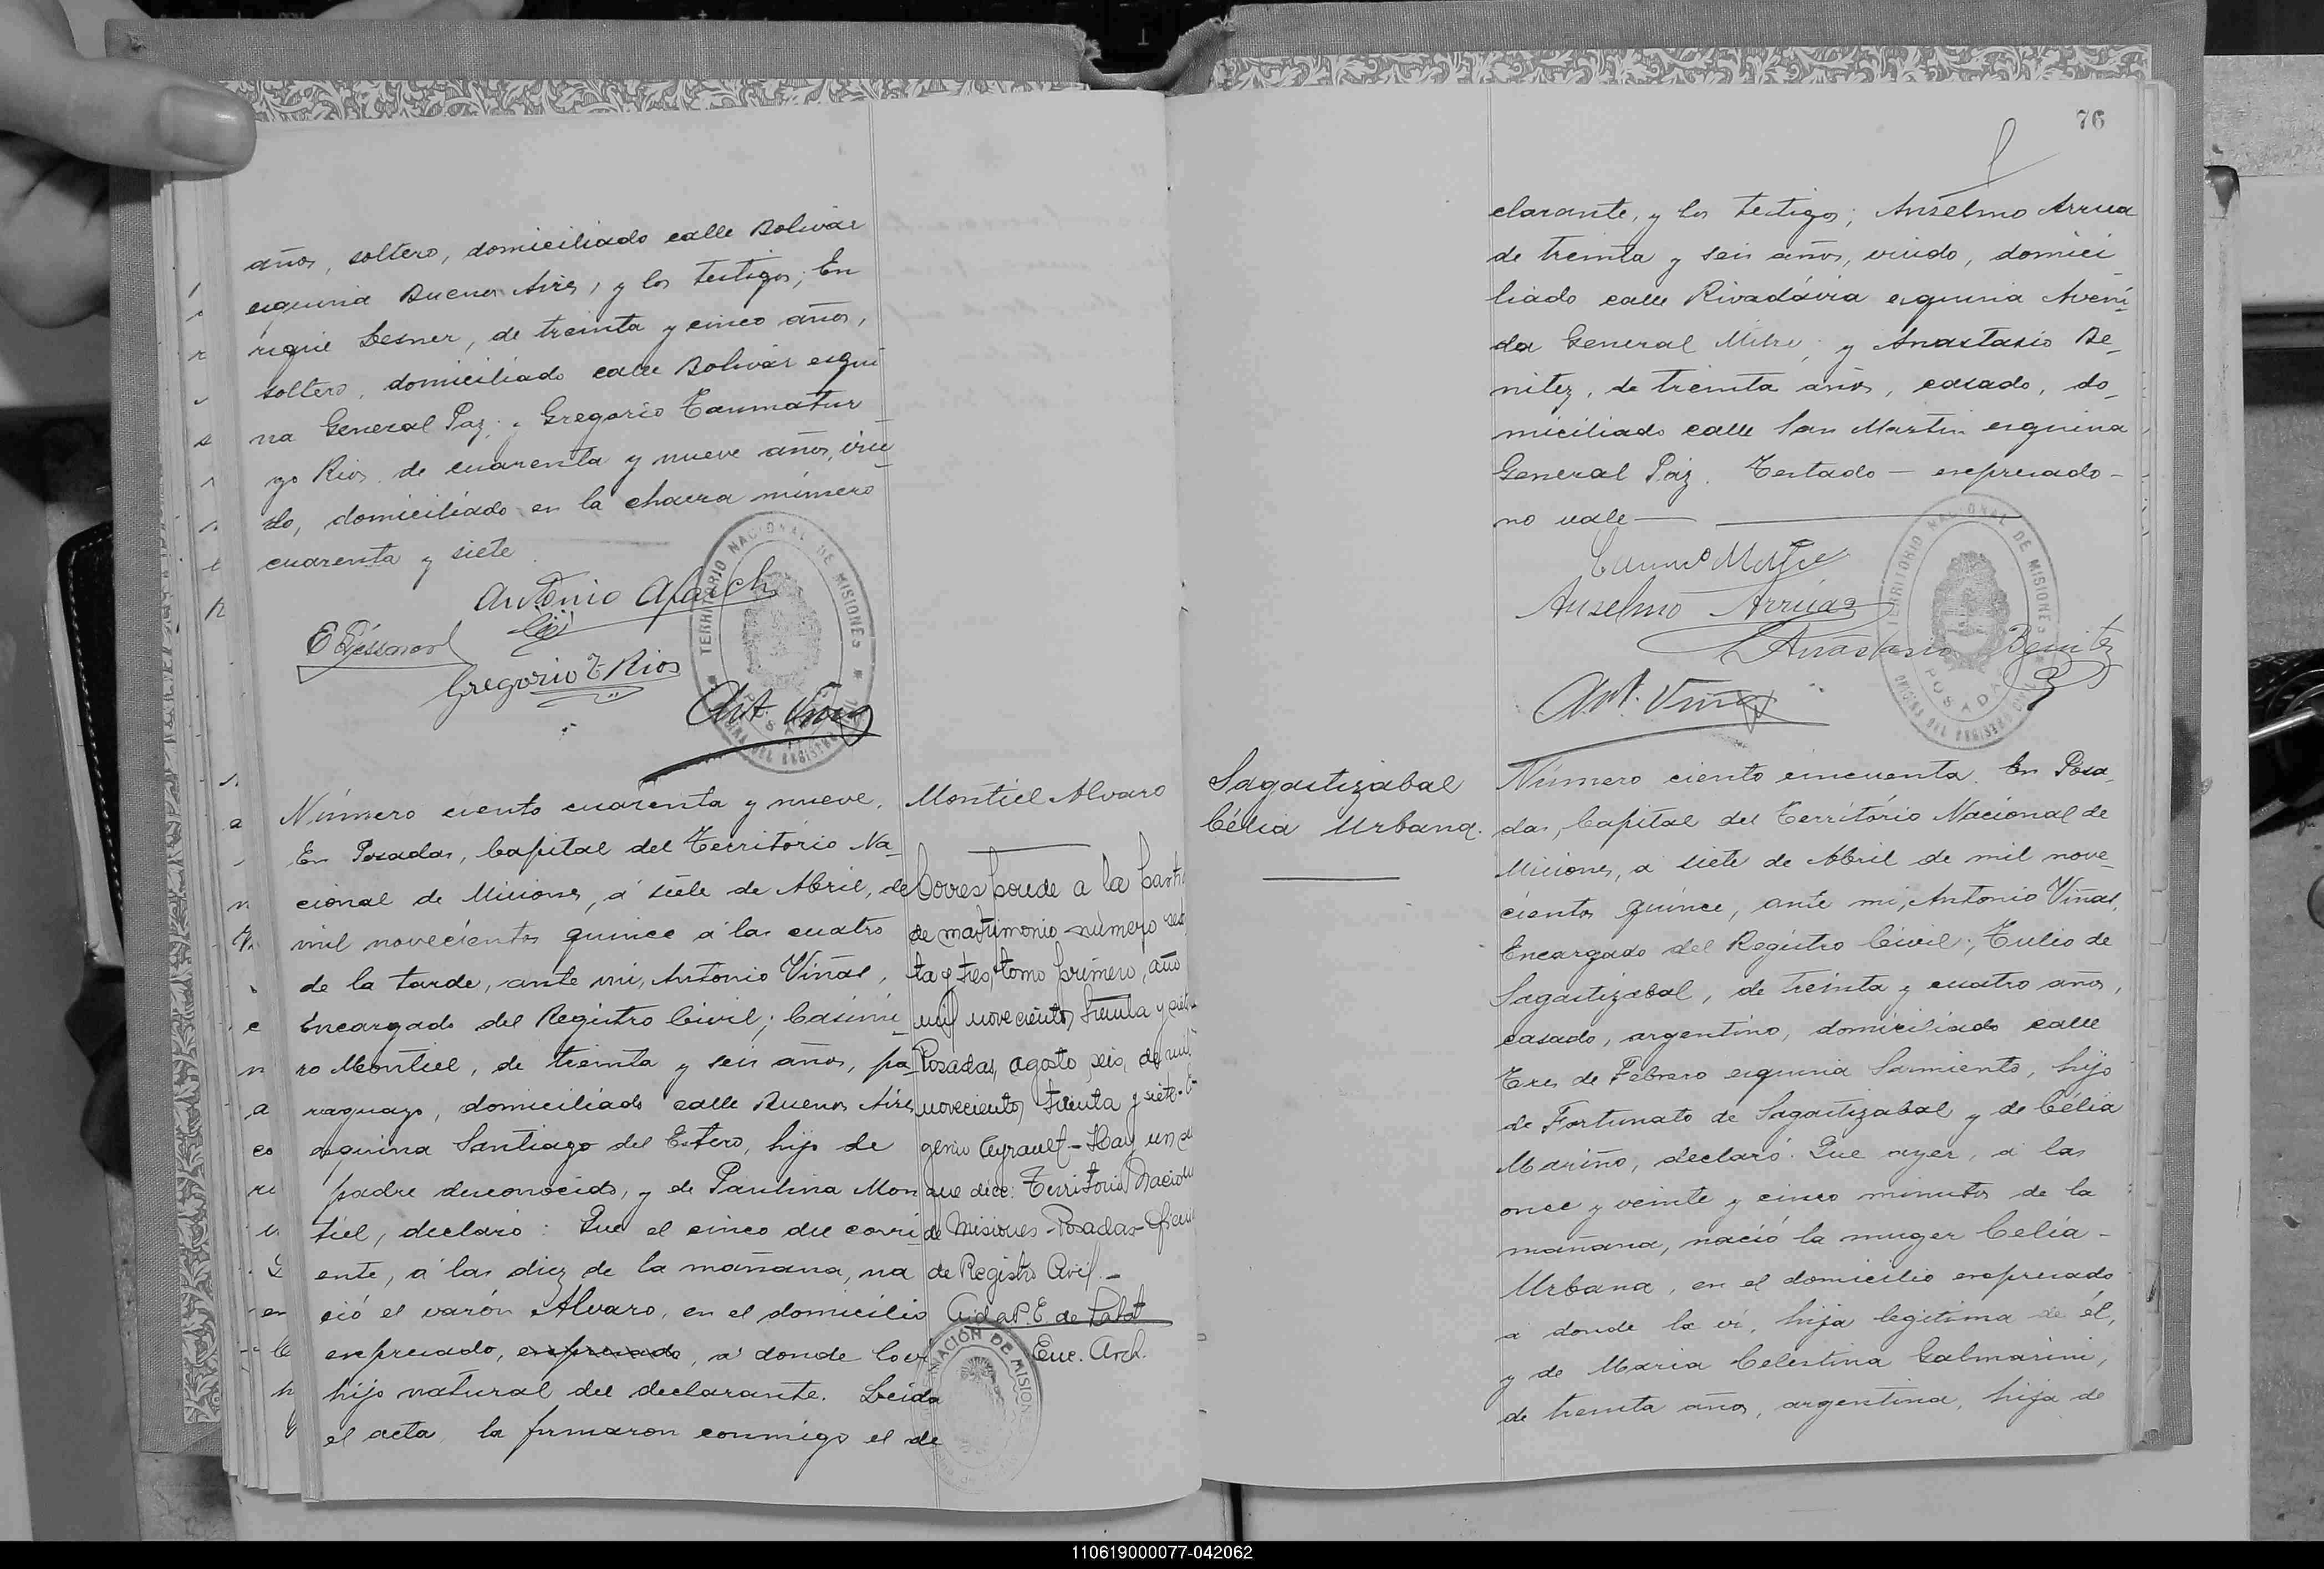 años, soltero, domiciliado calle Bolivar
esquina Buenos Aires, y los testigos; En
rique Lesner, de treinta y cinco años,
soltero, domiciliado calle Bolivar esqui
na General Paz; y Gregorio Taumatur
go Rios, de cuarenta y nueve años, viu_
do, domiciliado en la chacra número
cuarenta y siete
Antonio
Gregorio T Rios
Ant. Viñas
TERRITORIO NACIONAL DE MISIONES
Número ciento cuarenta y nueve.
En Posadas, Capital del Território Na_
cional de Misiones, á siete de Abril, de
mil novecientos quince á las cuatro
de la tarde, ante mi, Antonio Viñas,
Encargado del Registro Civil; Casimi_
ro Montiel, de treinta y seis años, pa_
raguayo, domiciliado calle Buenos Aires
esquina Santiago del Estero, hijo de
padre desconocido, y de Paulina Mon
tiel, declaró: Que el cinco del corri_
ente, á las diez de la mañana, na
ció el varón Alvaro, en el domicilio
expresado, expresado, á donde lo vi
hijo natural del declarante. Leida
el acta, la firmaron conmigo el de
Montiel Alvaro
Corresponde a la parti
de matrimonio número
ta y tres, tomo primero, año
mil novecientos treinta y siete
Posadas, agosto seis, de mil
novecientos treinta y siete.
que dice: Territorio Nacional
de Misiones - Posadas - Oficina
de Registro Civil. -
Aida P. E. de
Enc. Arch.
76
clarante, y los testigos; Anselmo Arrua
de treinta y seis años, viudo, domici_
liado calle Rivadávia esquina Aveni_
da General Mitre; y Anastasio Be_
nitez, de treinta años, casado, do_
miciliado calle San Martin esquina
General Paz. Testado — expresado —
no vale —
Anselmo Arrúa
Anastasio Benitez
Ant. Viñas
TERRITORIO NACIONAL DE MISIONES
POSADAS
OFICINA DEL REGISTRO CIVIL
Sagastizabal
Célia Urbana.
Número ciento cincuenta. En Posa_
das, Capital del Território Nacional de
Misiones, á siete de Abril de mil nove_
cientos quince, ante mi, Antonio Viñas,
Encargado del Registro Civil; Tulio de
Sagastizabal, de treinta y cuatro años,
casado, argentino, domiciliado calle
Tres de Febrero esquina Sarmiento, hijo
de Fortunato de Sagastizabal y de Célia
Mariño, declaró: Que ayer, á las
once y veinte y cinco minutos de la
mañana, nació la muger Celia -
Urbana, en el domicilio expresado
á donde la vi, hija legitima de él,
y de Maria Celestina Galmarini,
de treinta años, argentina, hija de
110619000077-042062